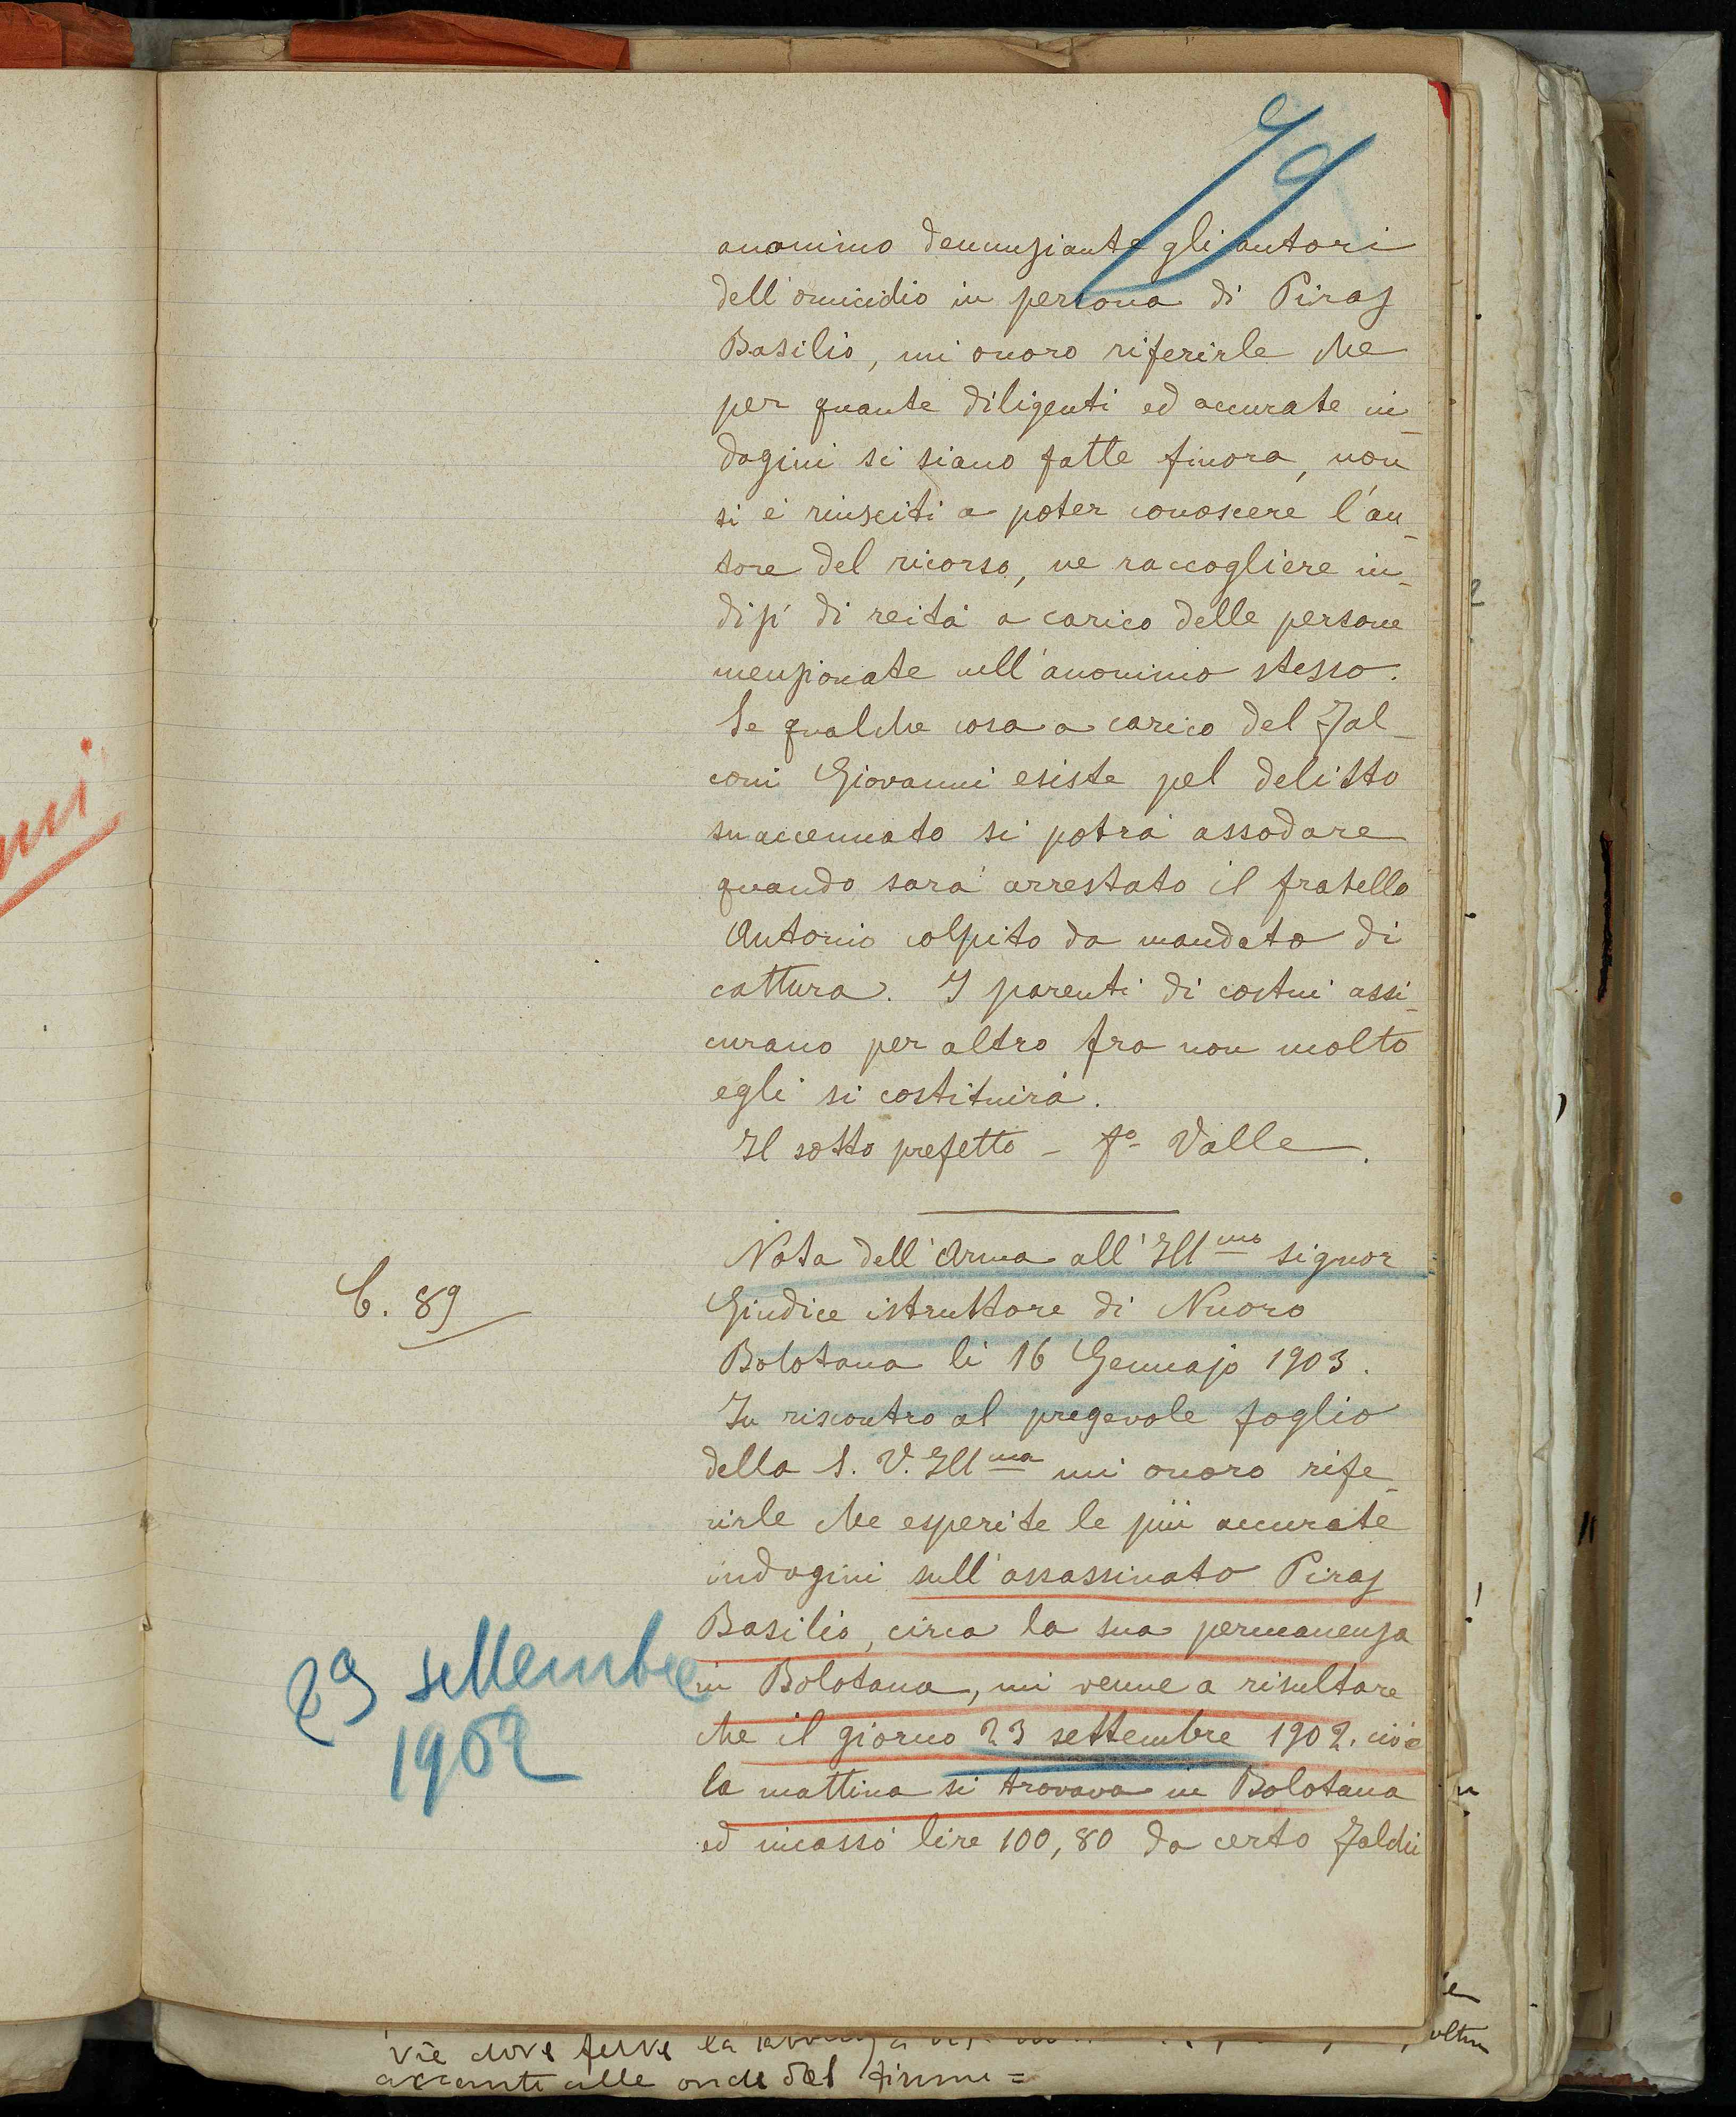 79
anonimo denunziante gli autori
dell'omicidio in persona di Piras
Basilio, mi onoro riferirle che
per quante diligenti ed accurate in_
dagini si siano fatte finora, non
si è riusciti a poter conoscere l'au_
tore del ricorso, ne raccogliere in_
dizi di reità a carico delle persone
menzionate nell'anonimo stesso.
Se qualche cosa a carico del Fal_
coni Giovanni esiste pel delitto
suaccennato si potrà assodare
quando sarà arrestato il fratello
Antonio colpito da mandato di
cattura. I parenti di costui assi_
curano per altro fra non molto
egli si costituirà.
Il sotto prefetto - fo Valle.
Nota dell'Arma all'Illmo signor
C. 89
Giudice istruttore di Nuoro
Bolotana li 16 Gennajo 1903.
In riscontro al pregevole foglio
della S. V. Illma mi onoro rife_
rirle che esperite le più accurate
indagini sull'assassinato Piras
Basilio, circa la sua permanenza
in Bolotana, mi venne a risultare
che il giorno 23 settembre 1902. cioè
la mattina si trovava in Bolotana
ed incassò lire 100,80 da certo Falchi
23 settembre
1902
vie dove ferve la
alle onde del fiume =